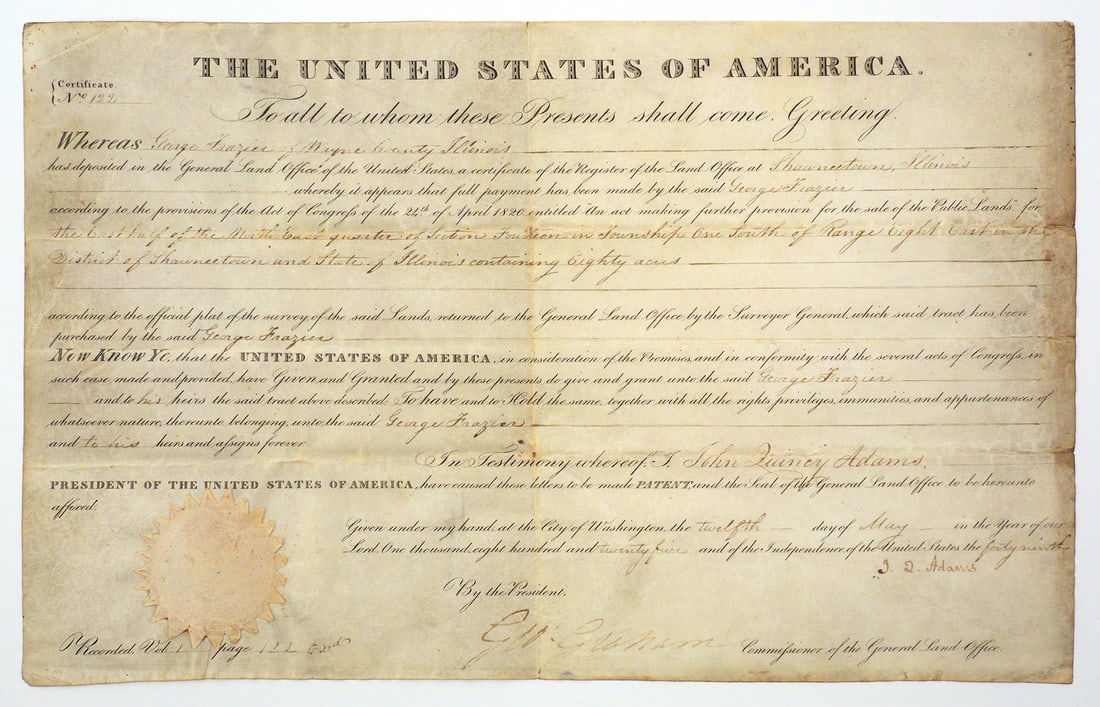 THE UNITED STATES OF AMERICA.
Certificate
No. 122
To all to whom these Presents shall come, Greeting.
Whereas George Frazier of Wayne County Illinois
has deposited in the General Land Office, of the United States, a certificate of the Register of the Land Office at Shawneetown, Illinois
whereby it appears that full payment has been made by the said George Frazier
according to the provisions of the Act of Congress of the 24th of April 1820, entitled "An act making further provision for the sale of the Public Lands," for
the East half of the North East quarter of Section in Township One South of Range Eight East in the
District of Shawneetown and State of Illinois containing Eighty acres
according to the official plat of the survey of the said Lands, returned to the General Land Office by the Surveyor General, which said tract has been
purchased by the said George Frazier
Now Know Ye, that the UNITED STATES OF AMERICA, in consideration of the Premises, and in conformity with the several acts of Congress, in
such case, made and provided, have Given and Granted and by these presents, do give and grant unto the said George Frazier
and to his heirs the said tract above described: To have and to Hold the same, together with all the rights privileges, immunities, and appurtenances of
whatsoever nature, thereunto belonging, unto the said George Frazier
and to his heirs and assigns forever.
In Testimony whereof, I, John Quincy Adams,
PRESIDENT OF THE UNITED STATES OF AMERICA, have caused these letters, to be made PATENT, and the Seal of the General Land Office to be hereunto
affixed.
Given under my hand, at the City of Washington, the twelfth day of May in the Year of our
Lord, One thousand, eight hundred and twenty five and of the Independence of the United States the forty ninth
J. Q. Adams
By the President,
Geo. Graham Commissioner of the General Land Office.
Recorded, Vol. 1 page 122